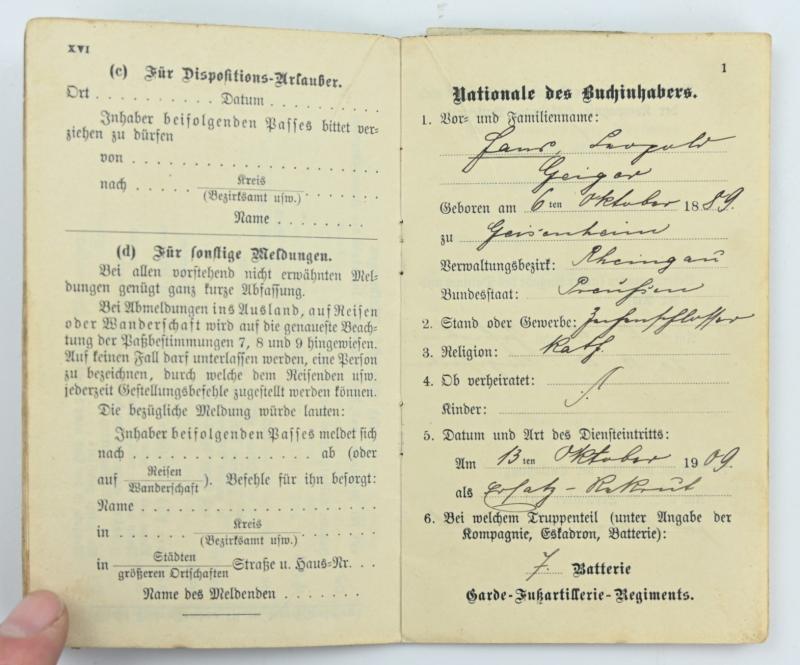 XVI
(c) Für Dispositions-Urlauber.
Ort . . . . . . . . . . Datum . . . . . . . . . .
Inhaber beifolgenden Passes bittet ver-
ziehen zu dürfen
von . . . . . . . . . . . . . . . . . . . .
nach . . . . . Kreis . . . . . . .
(Bezirksamt usw.)
Name . . . . . . . .
(d) Für sonstige Meldungen.
Bei allen vorstehend nicht erwähnten Mel-
dungen genügt ganz kurze Abfassung.
Bei Abmeldungen ins Ausland, auf Reisen
oder Wanderschaft wird auf die genaueste Beach-
tung der Paßbestimmungen 7, 8 und 9 hingewiesen.
Auf keinen Fall darf unterlassen werden, eine Person
zu bezeichnen, durch welche dem Reisenden usw.
jederzeit Gestellungsbefehle zugestellt werden können.
Die bezügliche Meldung würde lauten:
Inhaber beifolgenden Passes meldet sich
nach . . . . . . . . . . . . . . . ab (oder
auf Reisen
Wanderschaft). Befehle für ihn besorgt:
Name . . . . . . . . . . . . . . . . . . . .
in . . . . . Kreis . . . . . . .
(Bezirksamt usw.)
in Städten
größeren Ortschaften Straße u. Haus-Nr. . . .
Name des Meldenden . . . . . . .
1
Nationale des Buchinhabers.
1. Vor- und Familienname:
Leopold
Geiger
Geboren am 6ten Oktober 1889.
zu Geisenheim
Verwaltungsbezirk: Rheingau
Bundesstaat: Preußen
2. Stand oder Gewerbe:
3. Religion: kath.
4. Ob verheiratet:
Kinder:
5. Datum und Art des Diensteintritts:
Am 13ten Oktober 1909.
als Ersatz-Rekrut
6. Bei welchem Truppenteil (unter Angabe der
Kompagnie, Eskadron, Batterie):
7. Batterie
Garde-Fußartillerie-Regiments.